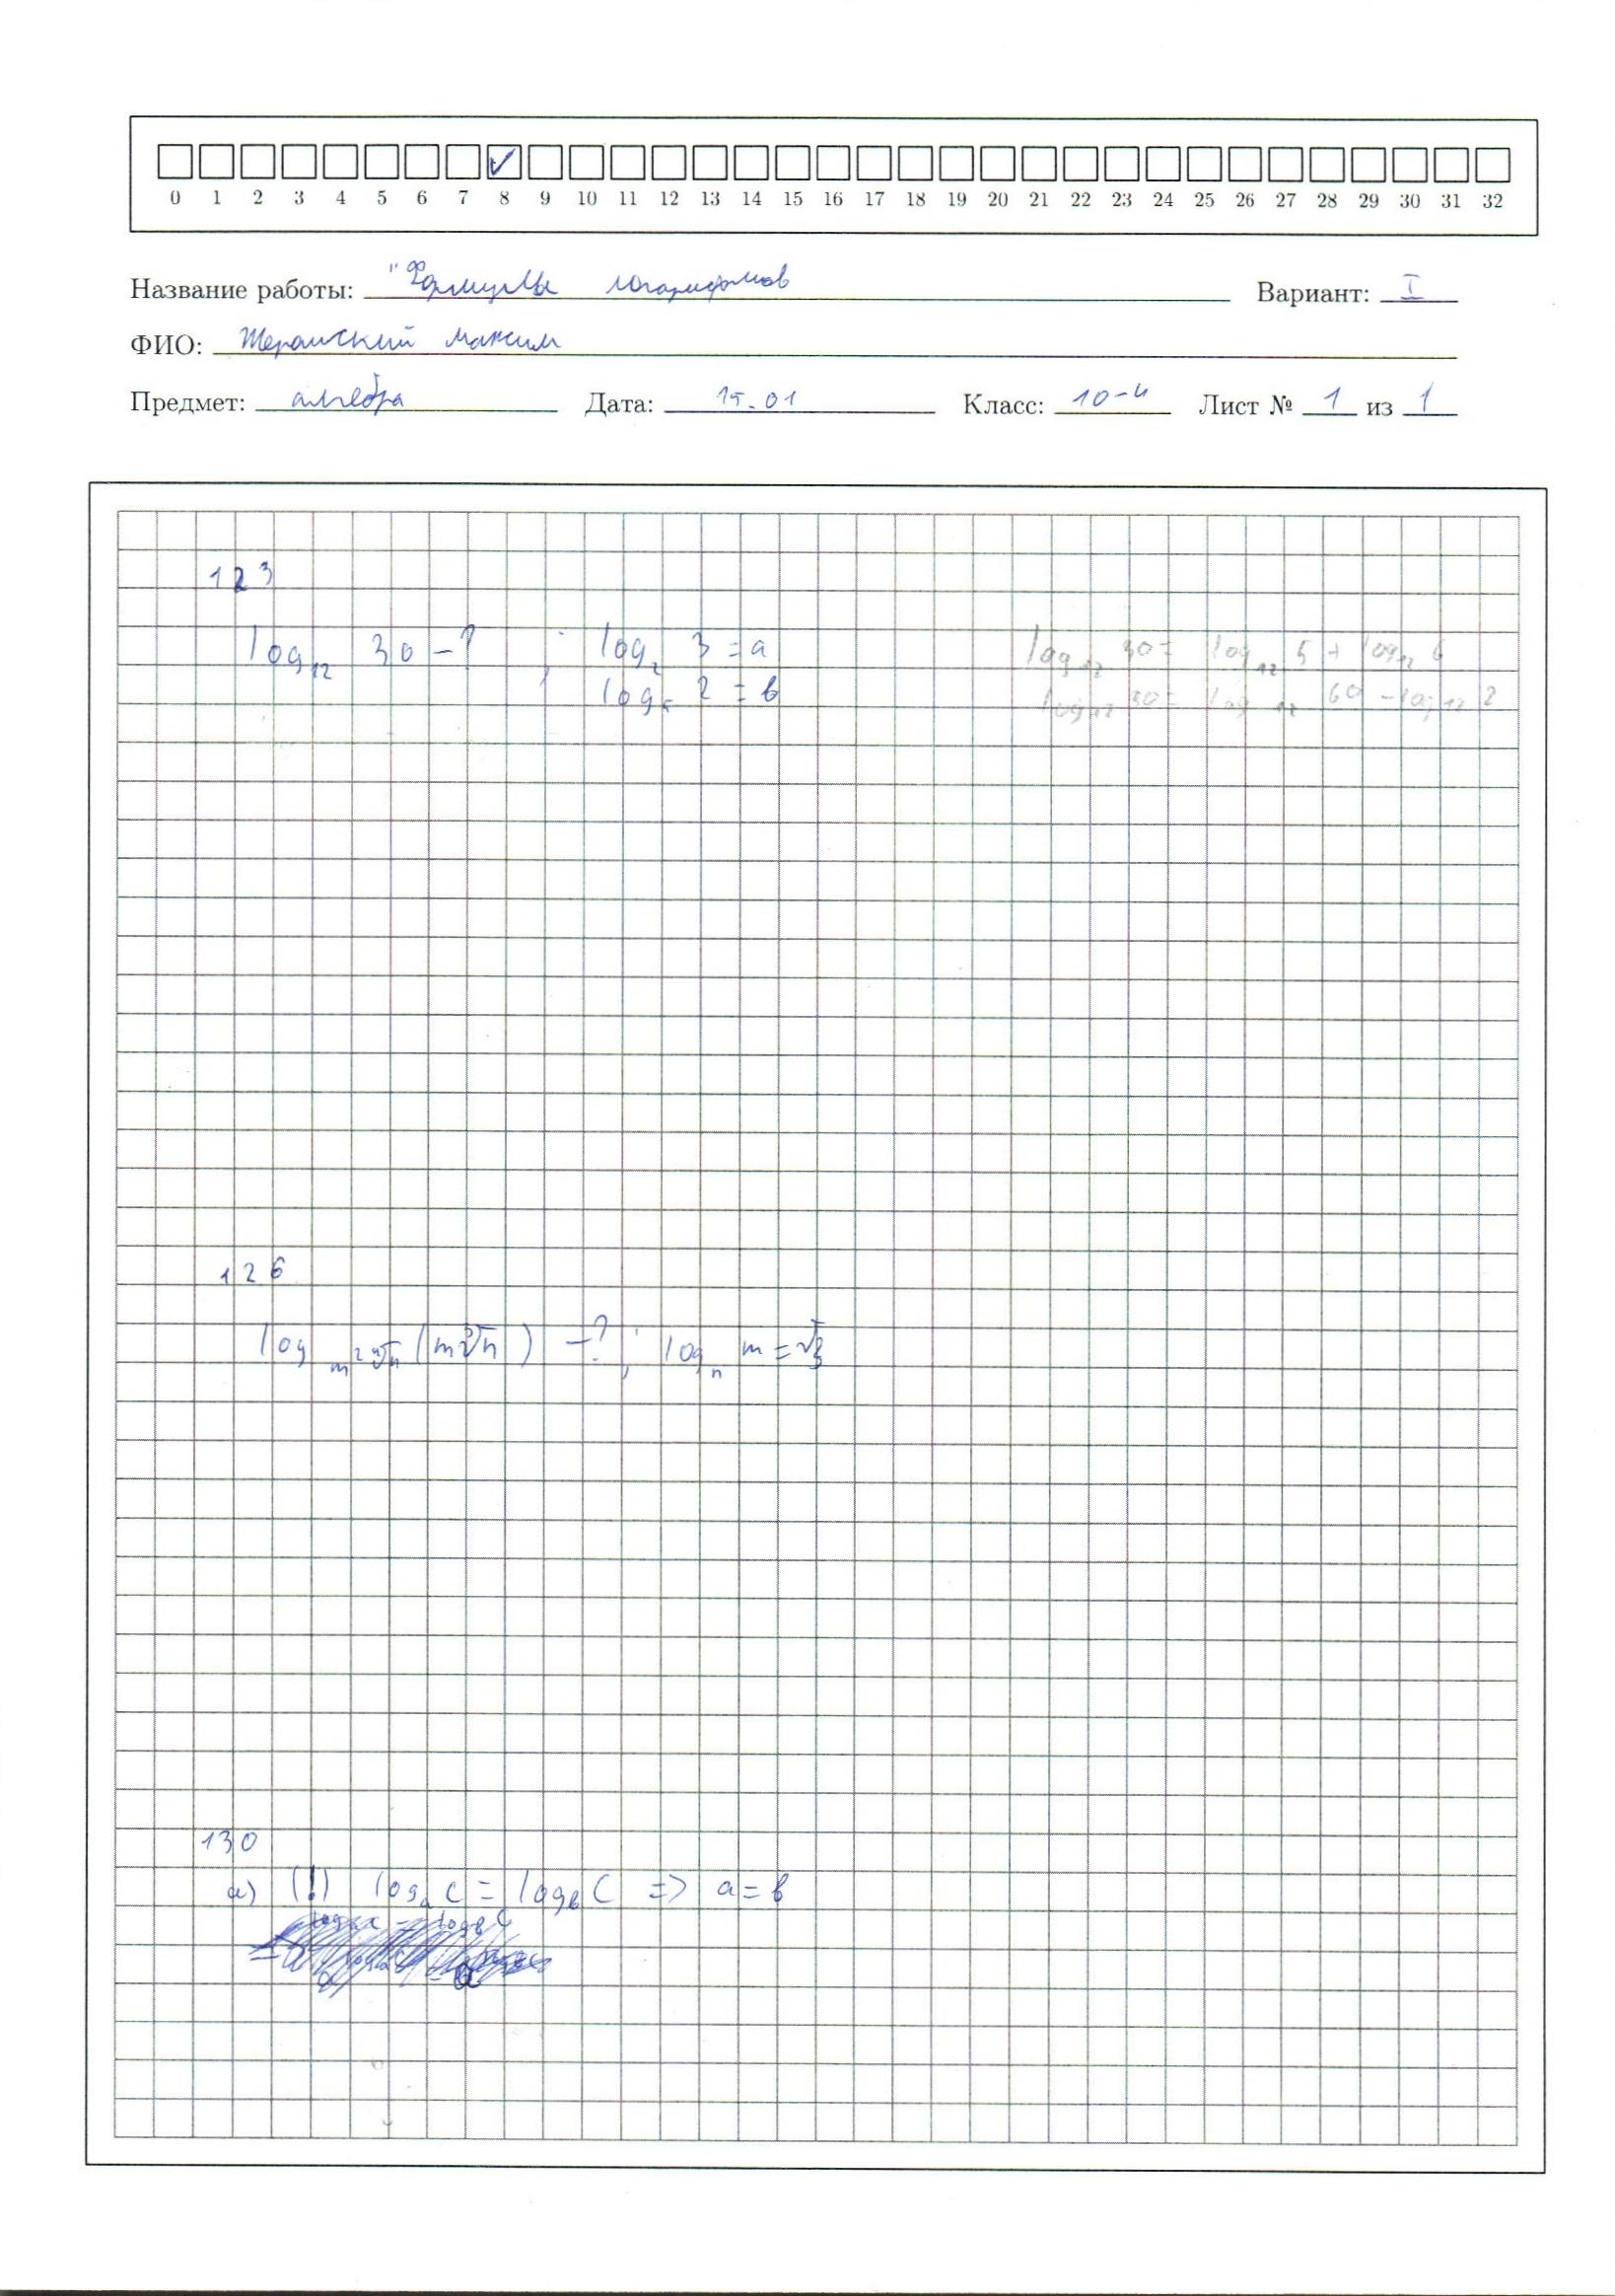 0 1 2 3 4 5 6 7 8 9 10 11 12 13 14 15 16 17 18 19 20 21 22 23 24 25 26 27 28 29 30 31 32
Название работы: "Формулы логарифмов Вариант: I
ФИО: Максим
Предмет: алгебра Дата: 15.01 Класс: 10-4 Лист № 1 из 1
123
log₁₂ 30 - ? ; log₂ 3 = a log₁₂ 30 = log₁₂ 5 + log₁₂ 6
log₅ 2 = b log₁₂ 30 = log₁₂ 60 - log₁₂ 2
126
log (m ) - ? ; logₙ m =
130
a) (!) logₐ c = log_b c => a = b